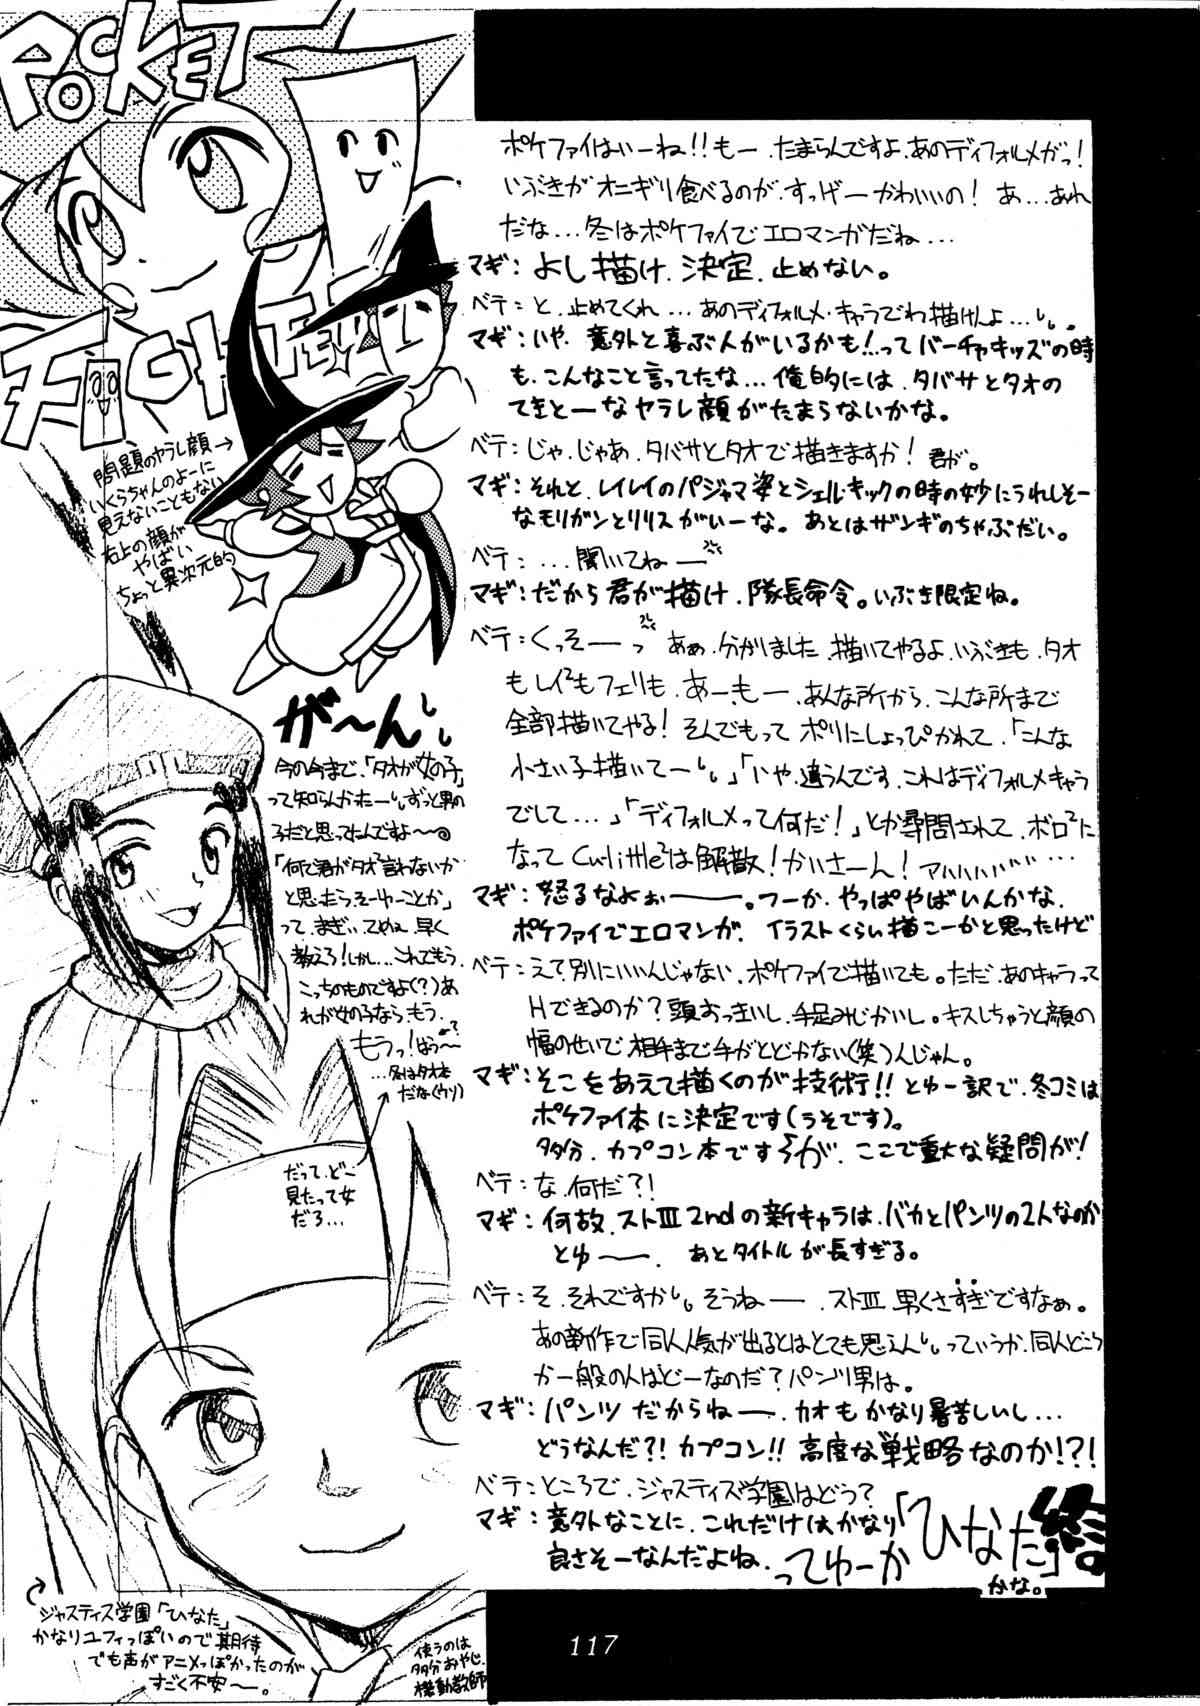 POCKET
FIGHTER
ポケファイはいーね!!もー、たまらんですよ、あのディフォルメがっ!
いぶきがオニギリ食べるのが、すっげーかわいいの!あ…あれ
だな…冬はポケファイでエロマンガだね…
マギ:よし描け、決定、止めない。
ベテ:と、止めてくれ…あのディフォルメ・キャラでわ描けんよ…。
マギ:いや、意外と喜ぶ人がいるかも!…ってバーチャキッズの時
も、こんなこと言ってたな…俺的には、タバサとタオの
てきとーなヤラレ顔がたまらないかな。
ベテ:じゃ、じゃあ、タバサとタオで描きますか!君が。
マギ:それと、レイレイのパジャマ姿とシェルキックの時の妙にうれしそー
なモリガンとリリスがいーな。あとはザンギのちゃぶだい。
ベテ:…聞いてねー
マギ:だから君が描け、隊長命令。いぶき限定ね。
ベテ:くっそーっ あぁ、分かりました、描いてやるよ、いぶきも、タオ
もレイ²もフェリも、あーもー、あんな所から、こんな所まで
全部描いてやる!そんでもって、ポリにしょっぴかれて、「こんな
小さい子描いてー」「いや、違うんです、これはディフォルメキャラ
でして…」「ディフォルメって何だ!」とか尋問されて、ボロ²に
なってCu-little²は解散!かいさーん!アハハハハ…
マギ:怒るなよぉー。つーか、やっぱやばいんかな、
ポケファイでエロマンガ、イラストくらい描こーかと思ったけど
ベテ:えて、別にいいんじゃない、ポケファイで描いても。ただ、あのキャラって
Hできるのか?頭おっきいし、手足みじかいし。キスしちゃうと顔の
幅のせいで相手まで手がとどかない(笑)んじゃん。
マギ:そこをあえて描くのが技術!!とゆー訳で、冬コミは
ポケファイ本に決定です(うそです)。
多分、カプコン本ですが、ここで重大な疑問が!
ベテ:な、何だ?!
マギ:何故、ストⅢ2ndの新キャラは、バカとパンツの2人なのか
とゆー、あとタイトルが長すぎる。
ベテ:そ、それですか、そうねー、ストⅢ、男くさすぎですなぁ。
あの新作で同人人気が出るとはとても思えん、っていうか、同人どころ
か一般の人はどーなのだ?パンツ男は。
マギ:パンツだからねー、カオもかなり暑苦しいし…
どうなんだ?!カプコン!!高度な戦略なのか!?!
ベテ:ところで、ジャスティス学園はどう?
マギ:意外なことに、これだけはかなり
良さそーなんだよね、ってゆーか「ひなた」
かな。
終
問題のヤラレ顔→
いくらちゃんのよーに
見えないこともない
右上の顔が
やばい
ちょっと異次元的
が〜ん
今の今まで、「タオが女の子」
って知らんかったー、ずっと男の
子だと思ってたんですよ〜
「何で君がタオ²言わないか
と思ったら、そーゆーことか」
って、まぎぃ、てめぇ、早く
教えろ!しかし…これでもう、
こっちのものですよ(?)あ
れが女の子なら、もう、
もうっ!ばぅ〜
…冬はタオ本
だな(ウソ)
だって、どこ
見たって女
だろ…
ジャスティス学園「ひなた」
かなりユフィっぽいので期待
でも声がアニメっぽかったのが
すごく不安〜。
使うのは
多分おやじ
機動教師
117